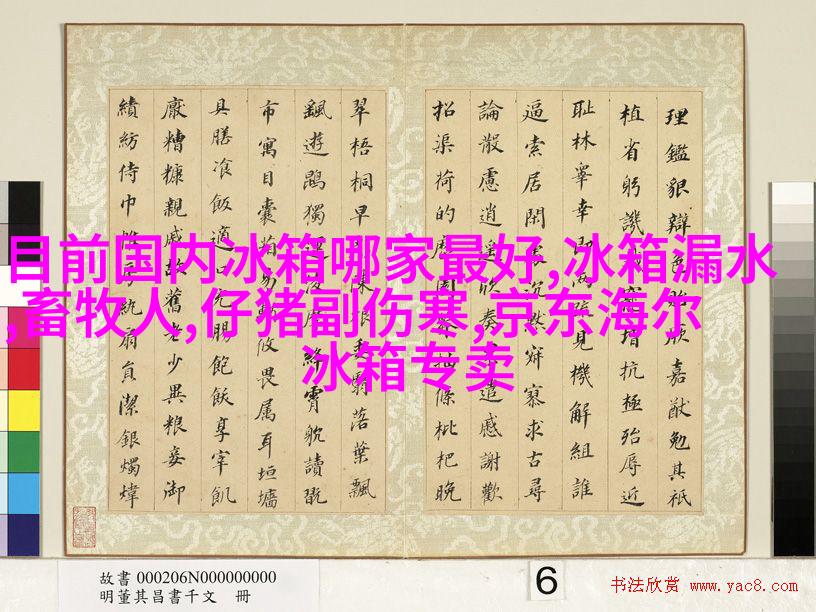 目前国内冰箱哪家最好,冰箱漏水
,畜牧人,仔猪副伤寒,京东海尔
冰箱专卖
理鑑貌辯嘉猷勉其祇
植省躬譏增抗極殆辱近
耻林睾幸即兩見機解組誰
逼索居閑沉默寂寥求古尋
論散慮逍遥欣奏遣慼謝歡
招渠荷的抽條枇杷晚
翠梧桐早陳根委翳落葉飄
飖遊鵾獨運絳霄躭讀翫
市寓目囊箱易攸畏属耳垣墻
具膳飡飯適口充腸飽飫享宰飢
厭糟糠親戚故舊老少異粮妾御
績紡侍巾帷房紈扇員潔銀燭煒
故書 000206N000000000
明董其昌書千文 冊
6
书法欣赏 www.yac8.com